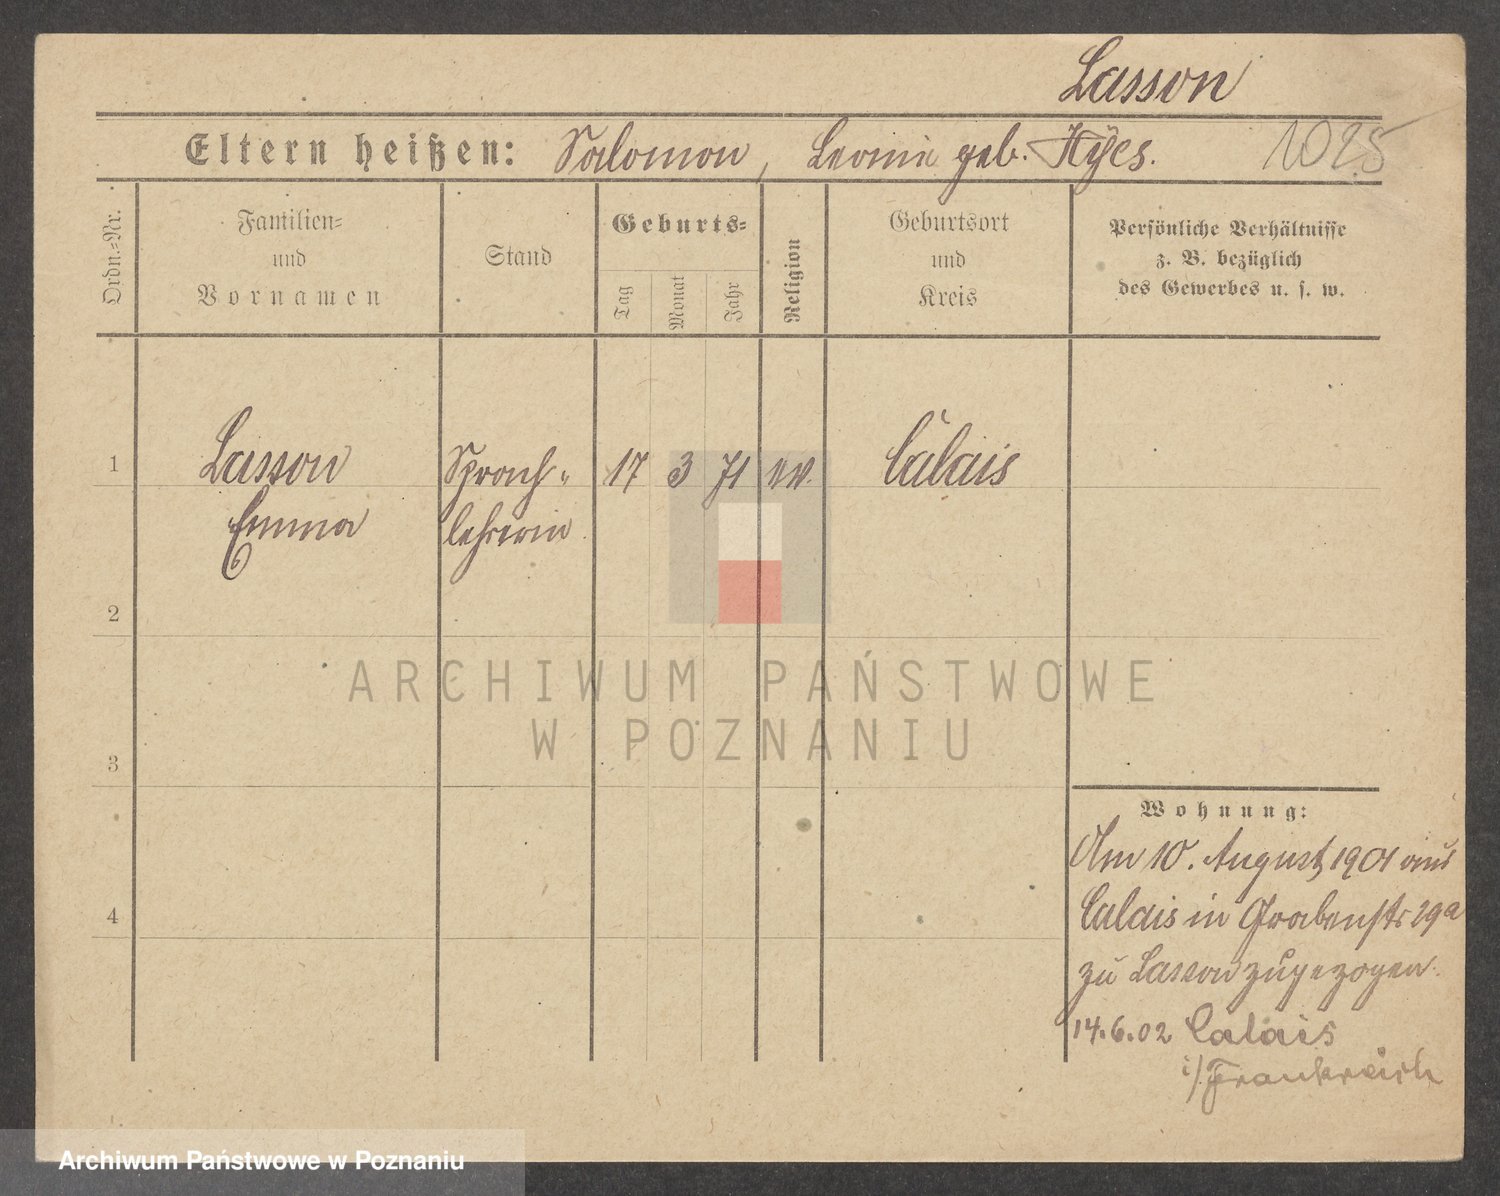 Lasson
Eltern heißen: Salomon, Leonie geb. Hyes. 1025
Ordn.=Nr.
Familien=
und
Vornamen
Stand
Geburts=
Tag
Monat
Jahr
Religion
Geburtsort
und
Kreis
Persönliche Verhältnisse
z. B. bezüglich
des Gewerbes u. s. w.
1 Lasson Sprach= 17 3 71 ev. Calais
Emma lehrerin
2
ARCHIWUM PAŃSTWOWE
W POZNANIU
3
Wohnung:
Am 10. August 1901 aus
4 Calais in Grabenstr 29a
zu Lasson zugezogen.
14.6.02 Calais
i/Frankreich
Archiwum Państwowe w Poznaniu